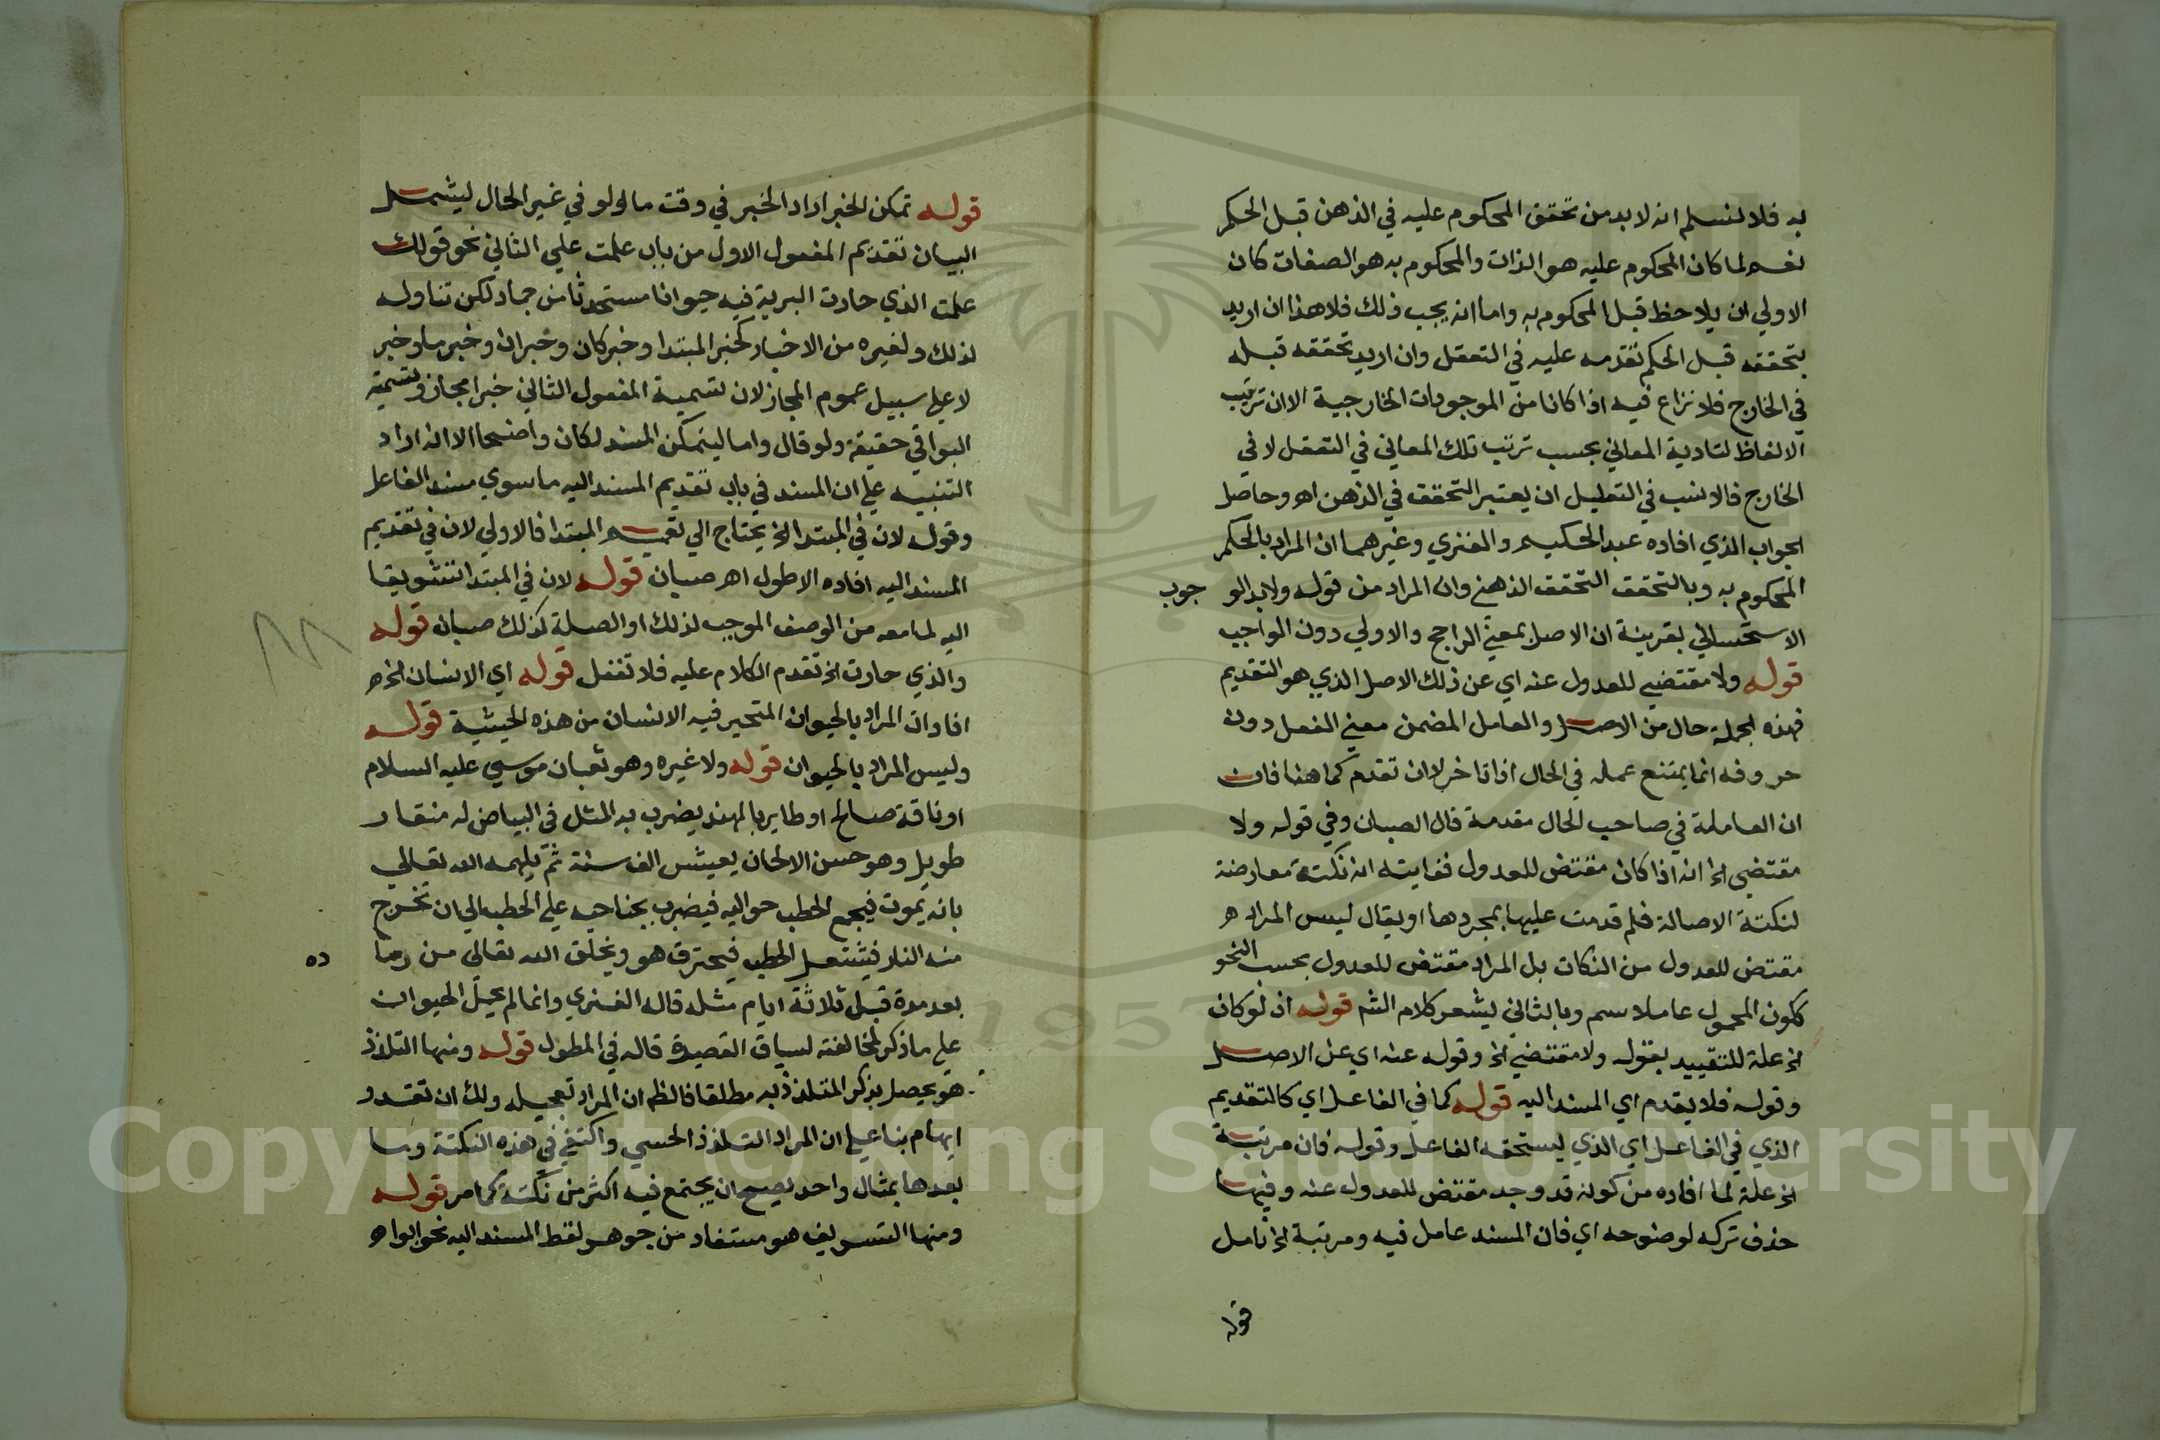 به فلا نسلم انه لا بد من تحقق المحكوم عليه في الذهن قبل الحكم
نعم لما كان المحكوم عليه هو الذات والمحكوم به هو الصفات كان
الاولي ان يلاحظ قبل المحكوم به واما انه يجب ذلك فلا هذا ان اريد
بتحققه قبل الحكم تقدمه عليه في التعقل وان اريد تحققه قبله
في الخارج فلا نزاع فيه اذا كانا من الموجودات الخارجية الا ان ترتيب
الالفاظ لتادية المعاني بحسب ترتيب تلك المعاني في التعقل لا في
الخارج فالانسب في التعليل ان يعتبر التحقق في الذهن اهـ وحاصل
الجواب الذي افاده عبد الحكيم والفنري وغيرهما ان المراد بالحكم
المحكوم به وبالتحقق التحقق الذهني وان المراد من قوله ولا بد الو جوب
الاستحساني بقرينة ان الاصل بمعني الراجح والاولي دون الواجب
قوله ولا مقتضي للعدول عنه اي عن ذلك الاصل الذي هو التقديم
فهذه الجملة حال من الاصل والعامل المضمن معني الفعل دون
حروفه انما يمتنع عمله في الحال اذا تاخر لا ان تقدم كما هنا فان
ان العاملة في صاحب الحال مقدمة قال الصبان وفي قوله ولا
مقتضي الخ انه اذا كان مقتض للعدول فغايته انه نكتة معارضة
لنكتة الاصالة فلم قدمت عليها بمجردها او يقال ليس المراد
مقتض للعدول من النكات بل المراد مقتض للعدول بحسب النحو
ككون المحمول عاملا سم وبالثاني يشعر كلام الشم قوله اذ لو كان
الخ علة للتقييد بقوله ولا مقتضي الخ وقوله عنه اي عن الاصل
وقوله فلا يقدم اي المسند اليه قوله كما في الفاعل اي كالتقديم
الذي في الفاعل اي الذي يستحقه الفاعل وقوله فان مرتبة
الخ علة لما افاده من كونه قد وجد مقتض للعدول عنه وفيها
حذف تركه لوضوحه اي فان المسند عامل فيه ومرتبة الخ تامل
قوله
قوله تمكن الخبر اراد الخبر في وقت ما ولو في غير الحال ليشمل
البيان تقديم المفعول الاول من باب علمت علي الثاني نحو قولك
علمت الذي حارت البرية فيه حيوانا مستحدثا من جماد لكن تناوله
لذلك ولغيره من الاخبار كخبر المبتدا وخبر كان وخبر ان وخبر ما وخبر
لا علي سبيل عموم المجاز لان تسمية المفعول الثاني خبرا مجاز وتسمية
البواقي حقيقة ولو قال واما ليتمكن المسند لكان واضحا الا انه اراد
التنبيه علي ان المسند في باب تقديم المسند اليه ما سوي مسند الفاعل
وقوله لان في المبتدا الخ يحتاج الي تعميم المبتدا فالاولي لان في تقديم
المسند اليه افاده الاطول اهـ صبان قوله لان في المبتدا تشويقا
اليه لما معه من الوصف الموجب لذلك او الصلة كذلك صبان قوله
والذي حارت الخ تقدم الكلام عليه فلا تغفل قوله اي الانسان الخ
افاد ان المراد بالحيوان المتحير فيه الانسان من هذه الحيثية قوله
وليس المراد بالحيوان قوله ولا غيره وهو ثعبان موسي عليه السلام
او ناقة صالح او طاير بالهند يضرب به المثل في البياض له منقار
طويل وهو حسن الالحان يعيش الف سنة ثم يلهمه الله تعالي
بانه يموت فيجمع الحطب حواليه فيضرب بجناحيه علي الحطب الي ان تخرج
منه النار فيشتعل الحطب فيحترق هو ويخلق الله تعالي من رما ده
بعد مدة قبل ثلاثة ايام مثله قاله الفنري وانما لم يحمل الحيوان
علي ما ذكر لمخالفته لسياق القصيدة قاله في المطول قوله ومنها التلذذ
هو يحصل بذكر المتلذذ به مطلقا فالظم ان المراد تعجيله ولك ان تقدر
ايهام بنا علي ان المراد التلذذ الحسي واكتفي في هذه النكتة وما
بعدها بمثال واحد يصح ان يجتمع فيه اكثر من نكتة كما مر قوله
ومنها التشريف هو مستفاد من جوهر لفظ المسند اليه نحو
Copyright © King Saud University
1957